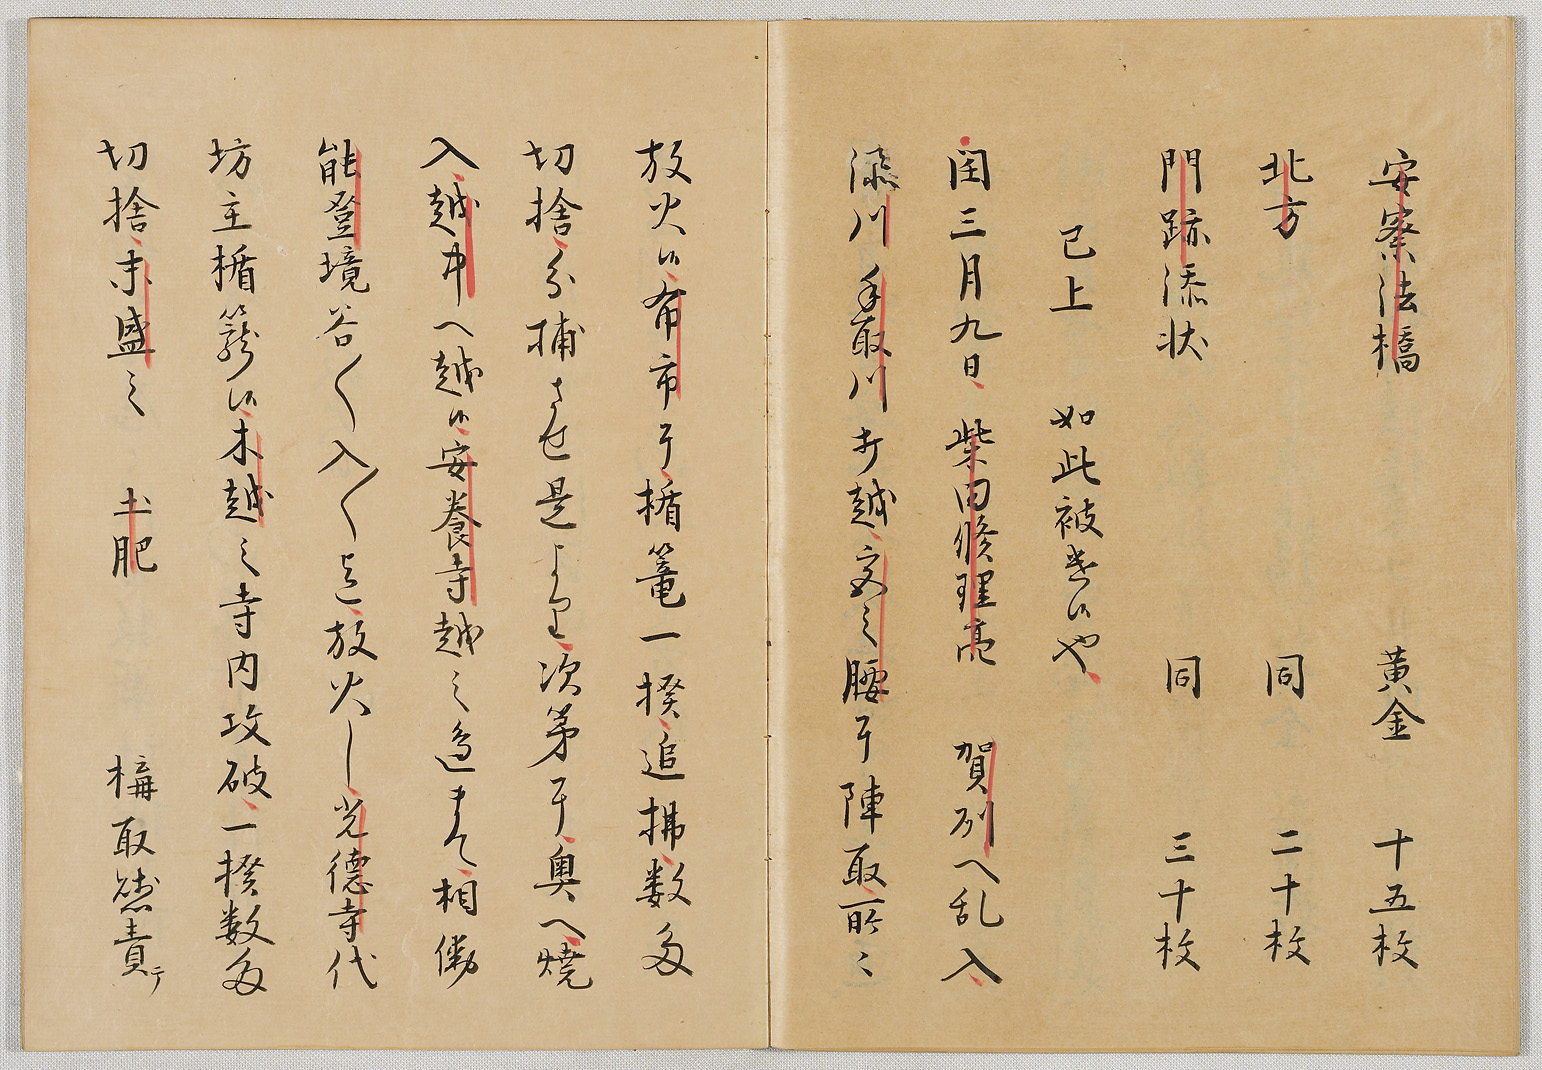 安察法橋 黄金 十五枚
北方 同 二十枚
門跡添状 同 三十枚
已上 如此被遣候也
閏三月九日柴田修理亮 賀列へ乱入
添川手取川打越宮之腰ニ陣取所々
放火候布市ニ楯篭一揆追拂数多
切捨分捕させ是より次第ニ奥へ焼
入越中へ越候安養寺越之邉まて相働
能登境谷〱入〱迄放火し光徳寺代
坊主楯籠候木越之寺内攻破一揆数多
切捨末盛之 土肥 構取懸責テ